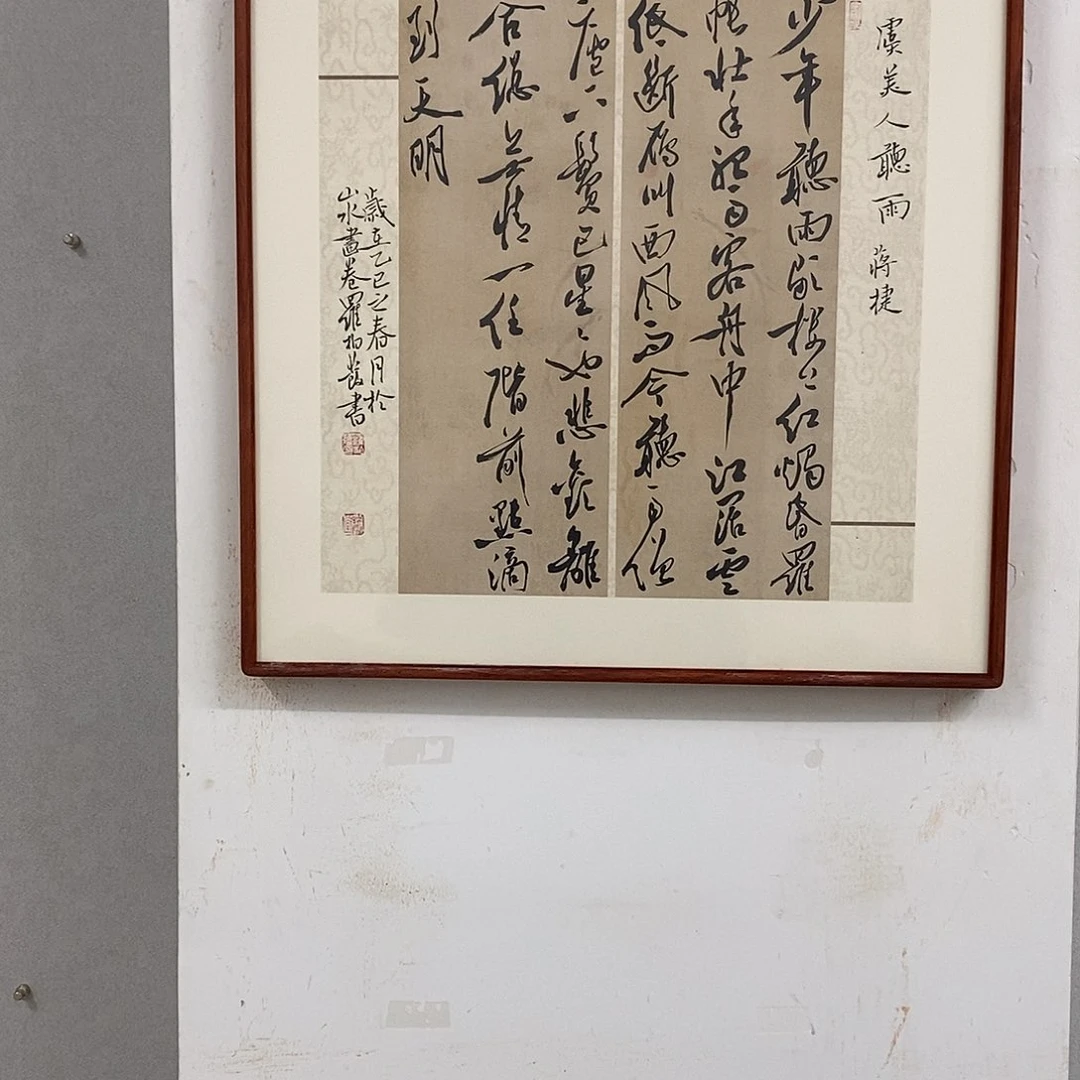 虞美人聽雨 蔣捷
少年聽雨歌樓上红燭昏羅
帳壮年聽雨客舟中 江闊雲
低斷雁叫西風而今聽雨僧
廬下鬢已星星也悲歡離
合總無情一任階前點滴
到天明
歲在乙巳之春月於
畫巷羅柏書